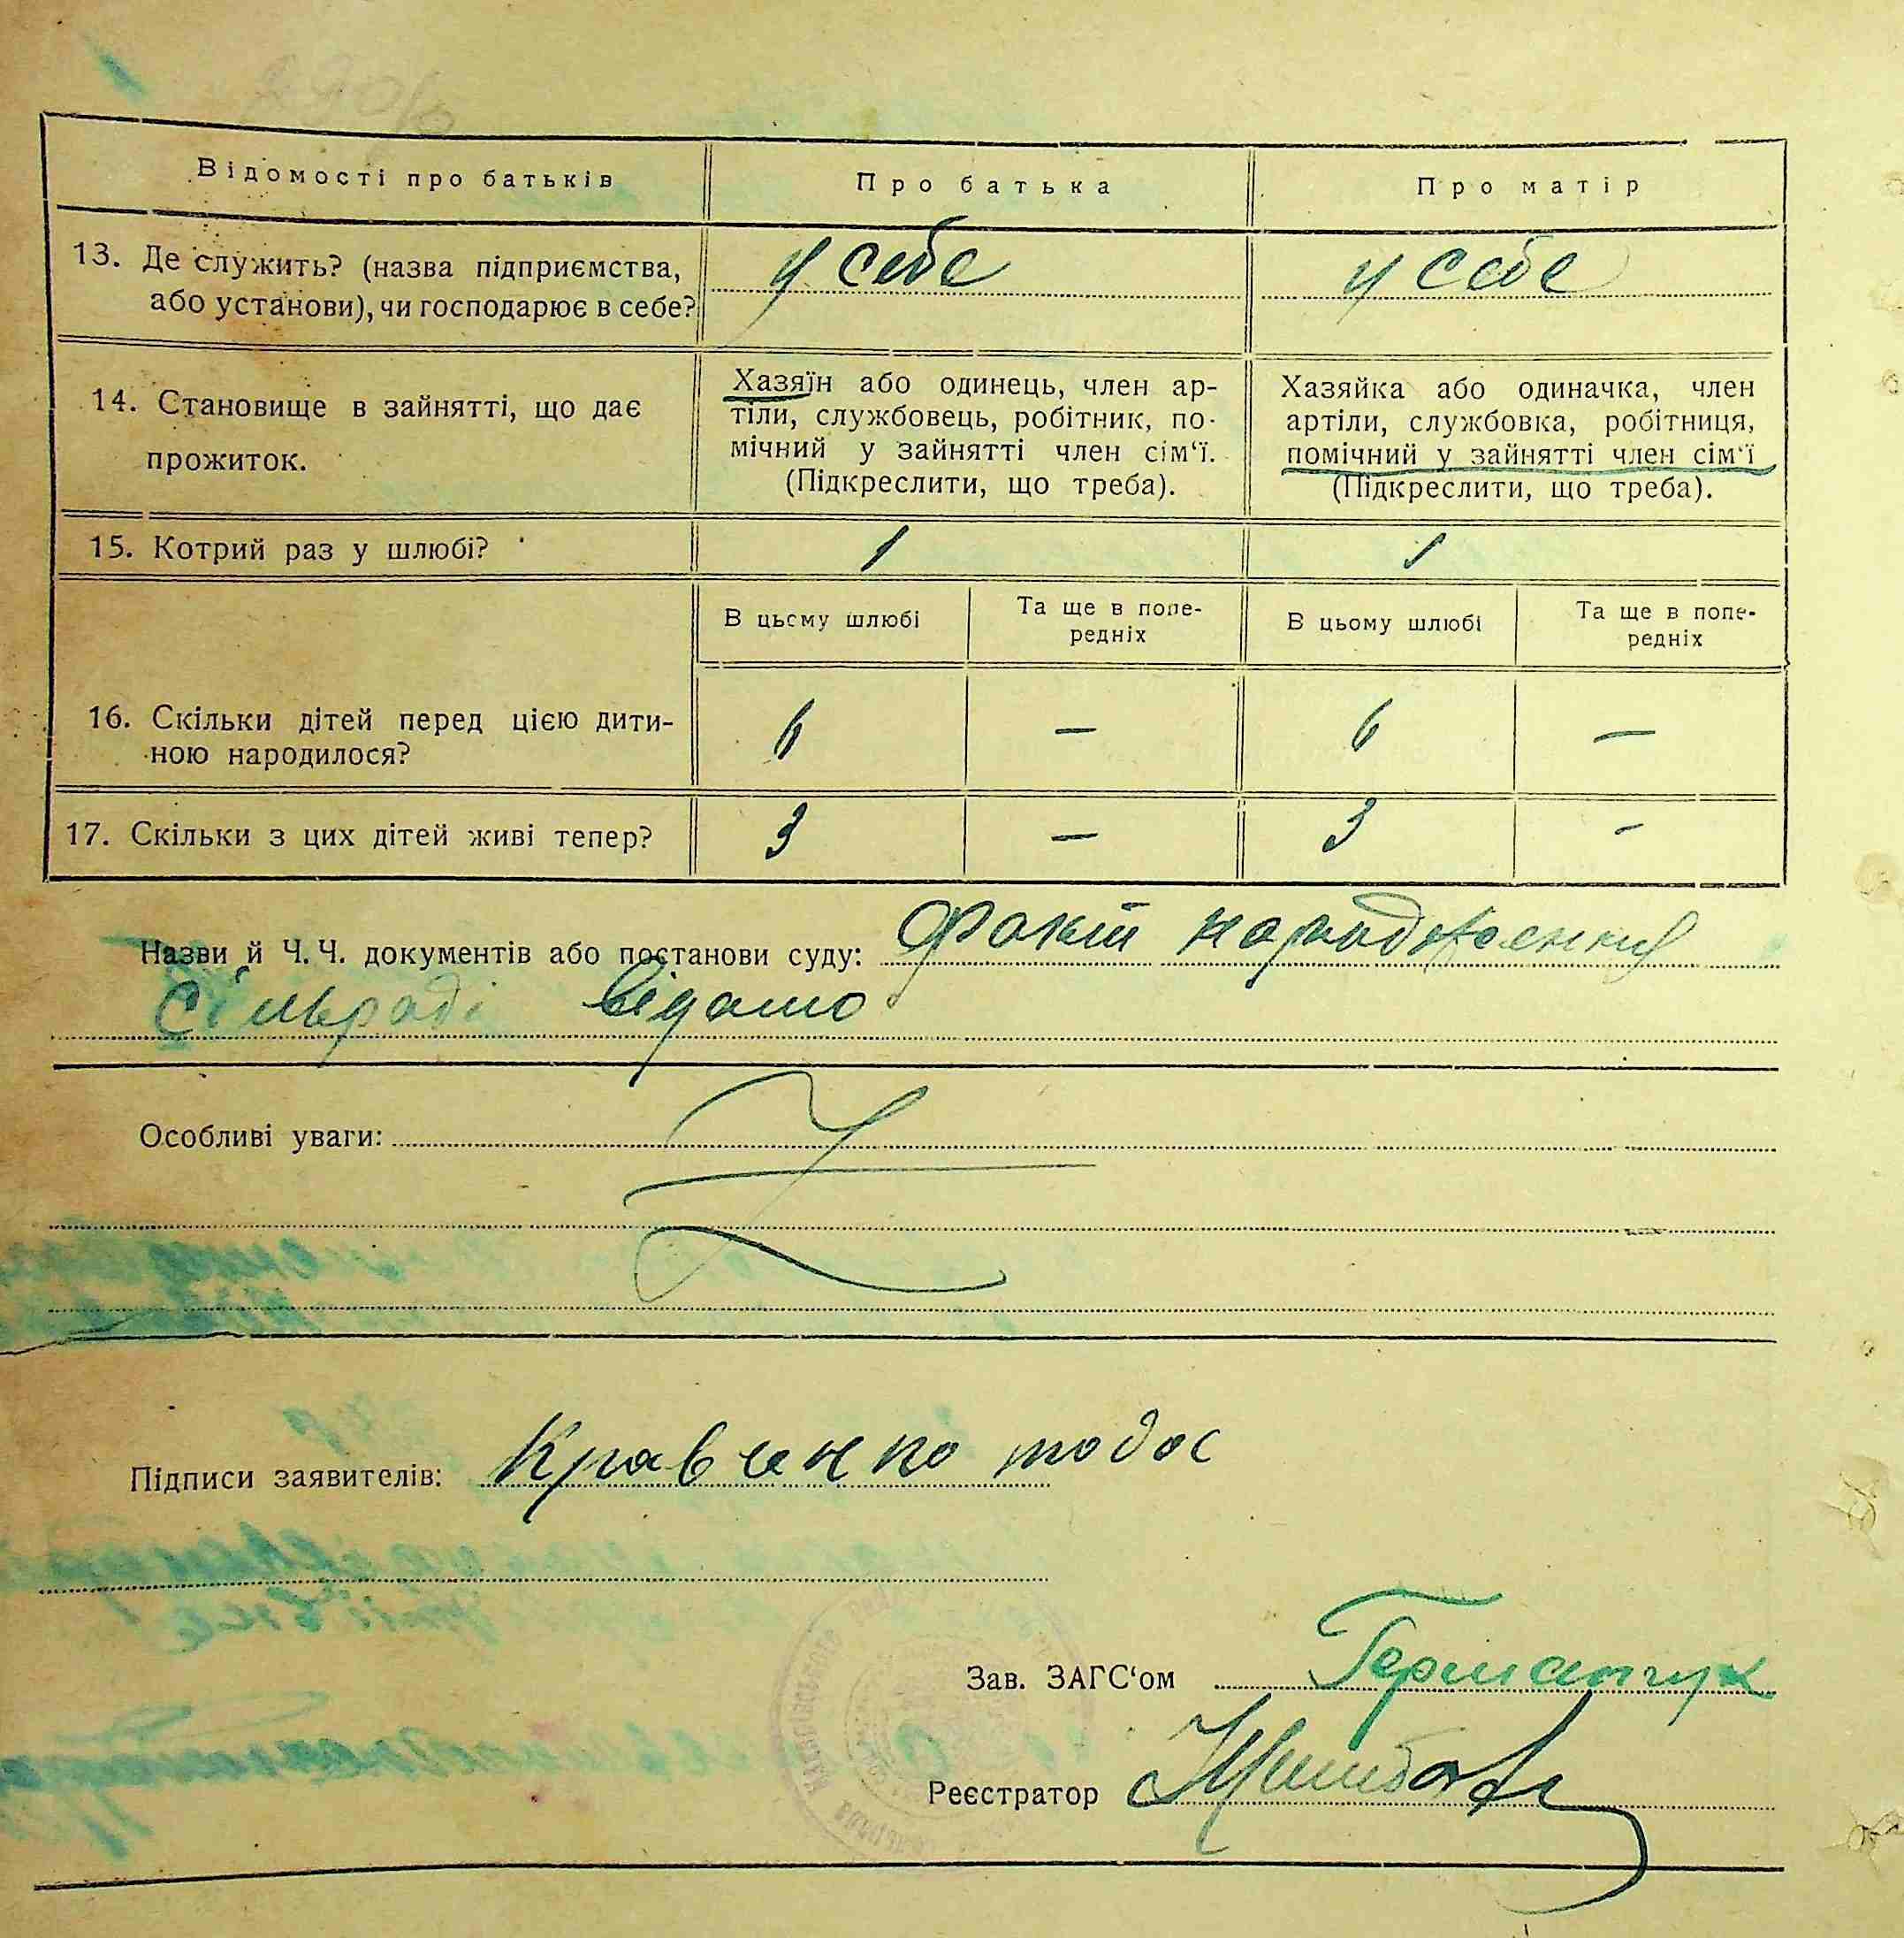 Відомості про батьків
Про батька
Про матір
13. Де служить? (назва підприємства,
або установи), чи господарює в себе?
у себе
у себе
14. Становище в зайнятті, що дає
прожиток.
Хазяїн або одинець, член ар-
тіли, службовець, робітник, по-
мічний у зайнятті член сім'ї.
(Підкреслити, що треба).
Хазяйка або одиначка, член
артіли, службовка, робітниця,
помічний у зайнятті член сім'ї
(Підкреслити, що треба).
15. Котрий раз у шлюбі?
1
1
В цьому шлюбі
Та ще в попе-
редніх
В цьому шлюбі
Та ще в попе-
редніх
16. Скільки дітей перед цією дити-
ною народилося?
6
—
6
—
17. Скільки з цих дітей живі тепер?
3
—
3
-
Назви й Ч. Ч. документів або постанови суду: Факт народження
сільраді відомо
Особливі уваги:
Підписи заявителів: Кравченко тодос
Зав. ЗАГС'ом
Реєстратор